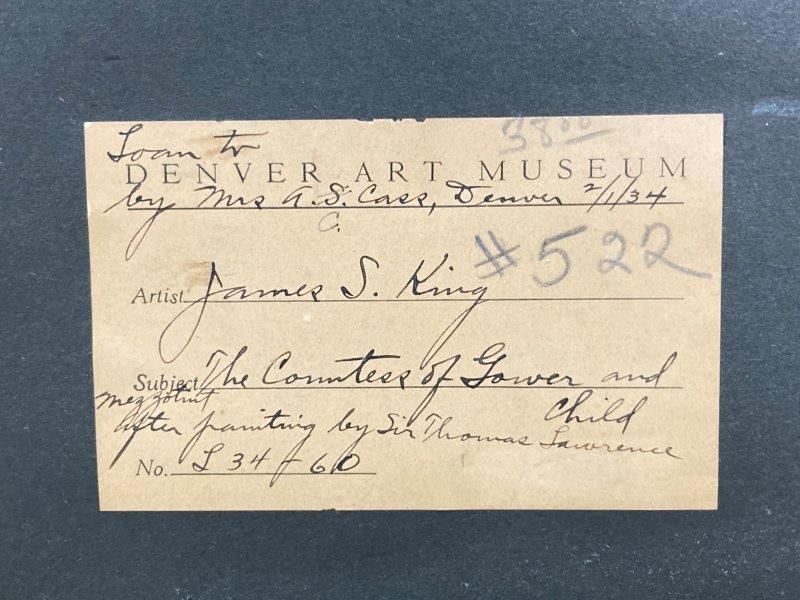 38.00
Loan to
DENVER ART MUSEUM
by Mrs A. S. Cass, Denver 2/1/34
C.
#522
Artist James S. King
Subject The Countess of Gower and
Child
mezzotint
after painting by Sir Thomas Lawrence
No. L 34-60